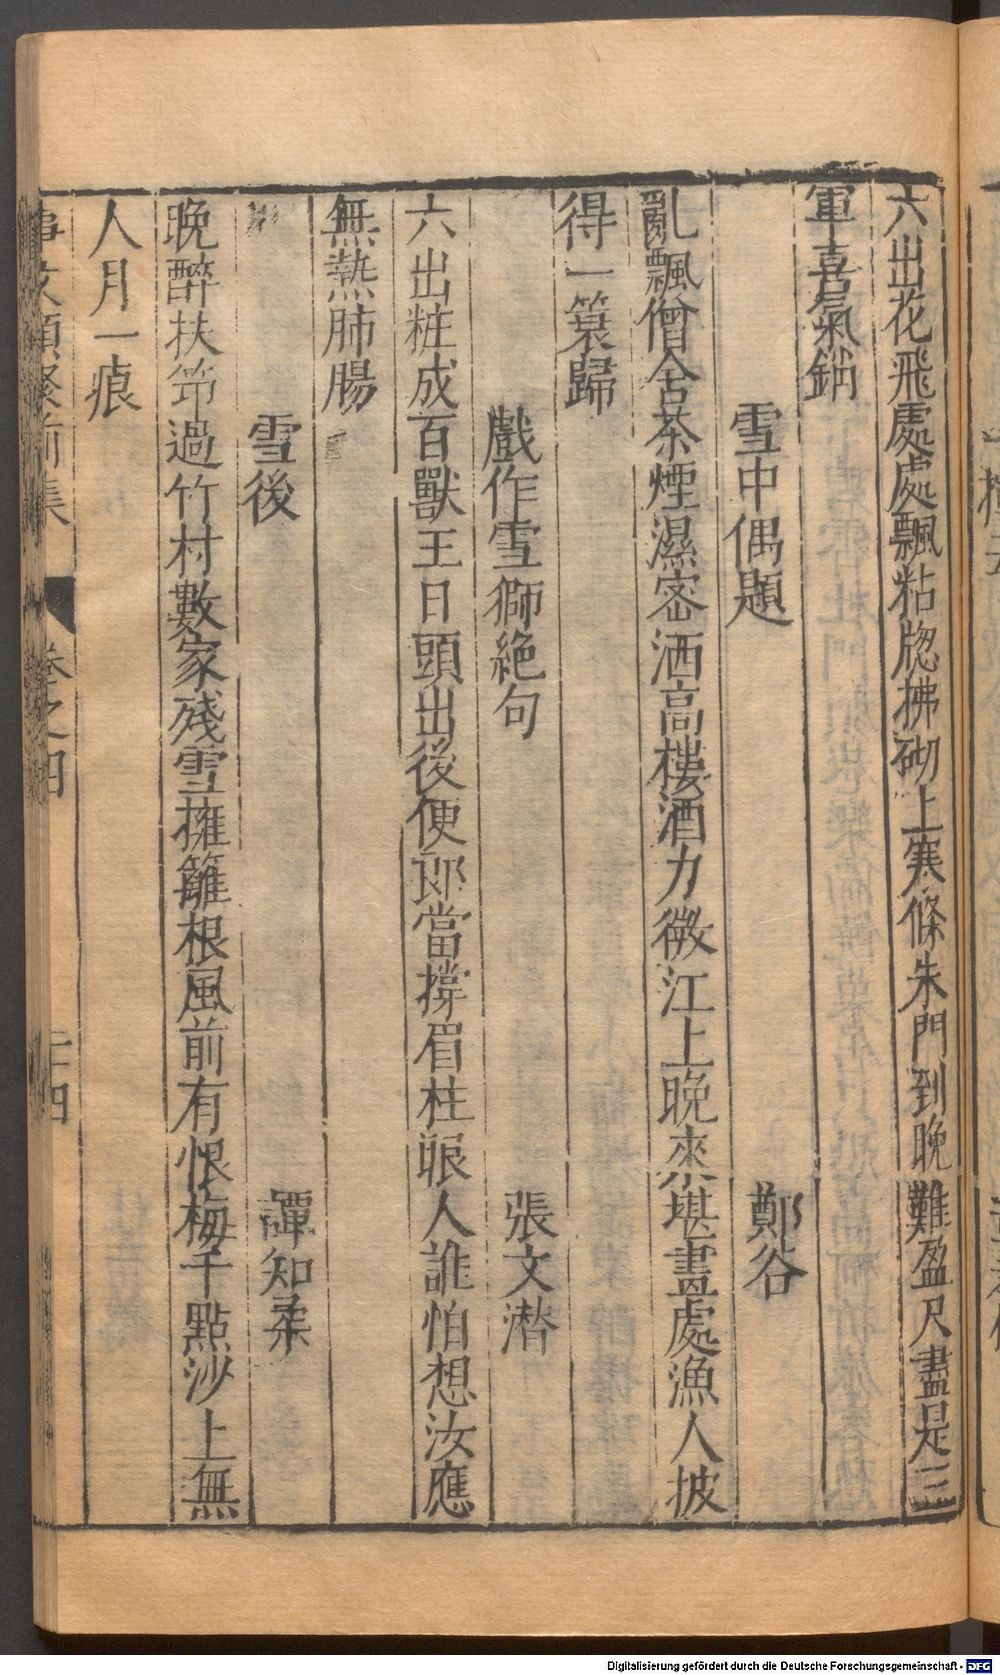 六出花飛處處飄粘牕拂砌上寒條朱門到晚難盈尺盡是三
軍喜氣銷
雪中偶題 鄭谷
亂飄僧舍茶煙濕密洒高樓酒力微江上晚來堪畫處漁人披
得一簑歸
戲作雪獅絶句 張文潜
六出粧成百獸王日頭出後便郎當撑眉柱眼人誰怕想汝應
無熱肺腸
雪後 譚知柔
晚醉扶笻過竹村數家殘雪擁籬根風前有恨梅千點沙上無
人月一痕
事文類聚前集 卷之四 二十四
Digitalisierung gefördert durch die Deutsche Forschungsgemeinschaft - DFG